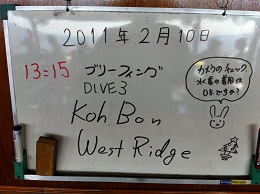 2011年2月10日
13:15 ブリーフィング
DIVE3
Koh Bon
West Ridge
カメラのチェック、
水着の着用は
OKですか?